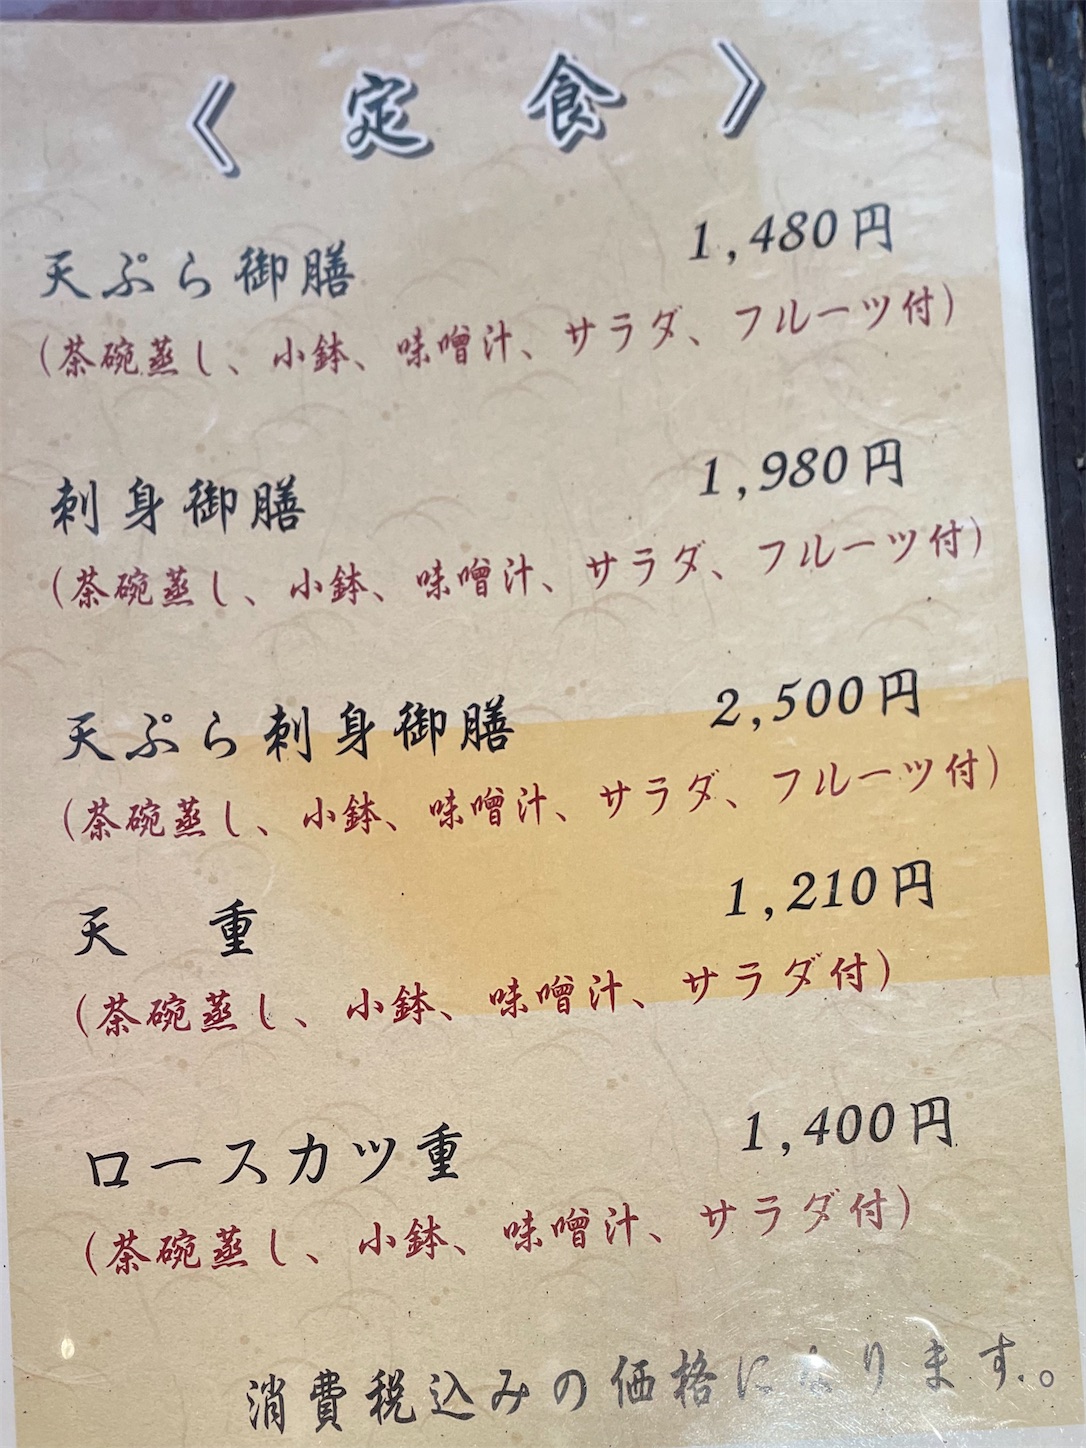 《 定 食 》
天ぷら御膳 1,480円
(茶碗蒸し、小鉢、味噌汁、サラダ、フルーツ付)
刺身御膳 1,980円
(茶碗蒸し、小鉢、味噌汁、サラダ、フルーツ付)
天ぷら刺身御膳 2,500円
(茶碗蒸し、小鉢、味噌汁、サラダ、フルーツ付)
天 重 1,210円
(茶碗蒸し、小鉢、味噌汁、サラダ付)
ロースカツ重 1,400円
(茶碗蒸し、小鉢、味噌汁、サラダ付)
消費税込みの価格になります。